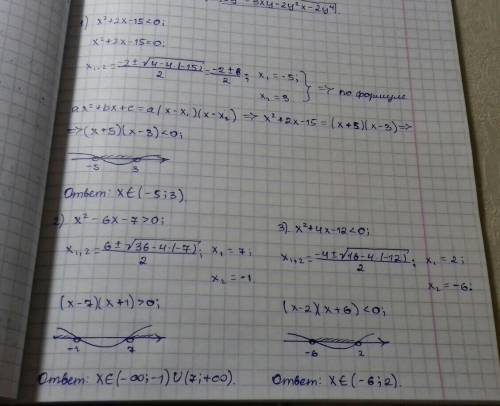 1) x²+2x-15<0;
x²+2x-15=0;
x₁,₂ = (-2±√(4-4·(-15)))/2 = (-2±8)/2; x₁=-5; x₂=3 } => по формуле
ax²+bx+c=a(x-x₁)(x-x₂) => x²+2x-15=(x+5)(x-3)=>
=>(x+5)(x-3)<0;
-5 3
Ответ: x∈(-5;3).
2) x²-6x-7>0;
x₁,₂ = (6±√(36-4·(-7)))/2; x₁=7;
x₂=-1.
(x-7)(x+1)>0;
-1 7
Ответ: x∈(-∞;-1)∪(7;+∞).
3) x²+4x-12<0;
x₁,₂ = (-4±√(16-4·(-12)))/2; x₁=2;
x₂=-6;
(x-2)(x+6)<0;
-6 2
Ответ: x∈(-6;2).